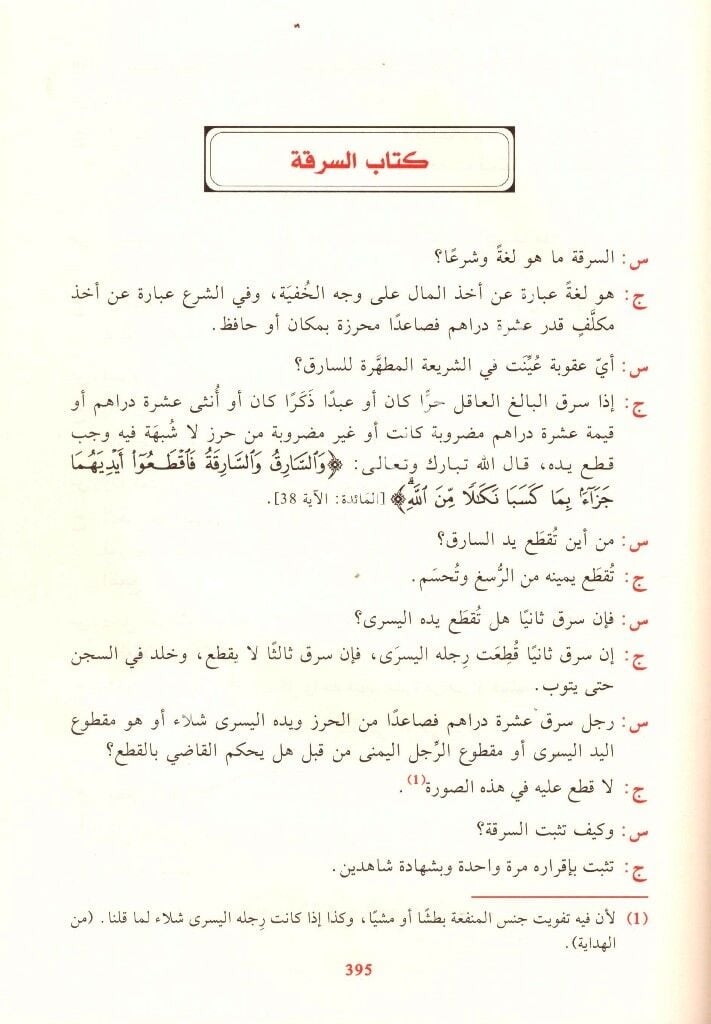 كتاب السرقة
س: السرقة ما هو لغةً وشرعًا؟
ج: هو لغةً عبارة عن أخذ المال على وجه الخُفيَة، وفي الشرع عبارة عن أخذ
مكلَّفٍ قدر عشرة دراهم فصاعدًا محرزة بمكان أو حافظ.
س: أيّ عقوبة عُيِّنَت في الشريعة المطهَّرة للسارق؟
ج: إذا سرق البالغ العاقل حرًّا كان أو عبدًا ذَكَرًا كان أو أُنثى عشرة دراهم أو
قيمة عشرة دراهم مضروبة كانت أو غير مضروبة من حرز لا شُبهَة فيه وجب
قطع يده، قال الله تبارك وتعالى: ﴿وَٱلسَّارِقُ وَٱلسَّارِقَةُ فَٱقْطَعُوٓا۟ أَيْدِيَهُمَا
جَزَآءًۢ بِمَا كَسَبَا نَكَـٰلًا مِّنَ ٱللَّهِۗ﴾ [المَائدة: الآية 38].
س: من أين تُقطَع يد السارق؟
ج: تُقطَع يمينه من الرُّسغ وتُحسَم.
س: فإن سرق ثانيًا هل تُقطَع يده اليسرى؟
ج: إن سرق ثانيًا قُطِعَت رِجله اليسرَى، فإن سرق ثالثًا لا يقطع، وخلد في السجن
حتى يتوب.
س: رجل سرق عشرة دراهم فصاعدًا من الحرز ويده اليسرى شلاء أو هو مقطوع
اليد اليسرى أو مقطوع الرِّجل اليمنى من قبل هل يحكم القاضي بالقطع؟
ج: لا قطع عليه في هذه الصورة(1).
س: وكيف تثبت السرقة؟
ج: تثبت بإقراره مرة واحدة وبشهادة شاهدين.
(1) لأن فيه تفويت جنس المنفعة بطشًا أو مشيًا، وكذا إذا كانت رِجله اليسرى شلاء لما قلنا. (من
الهداية).
395